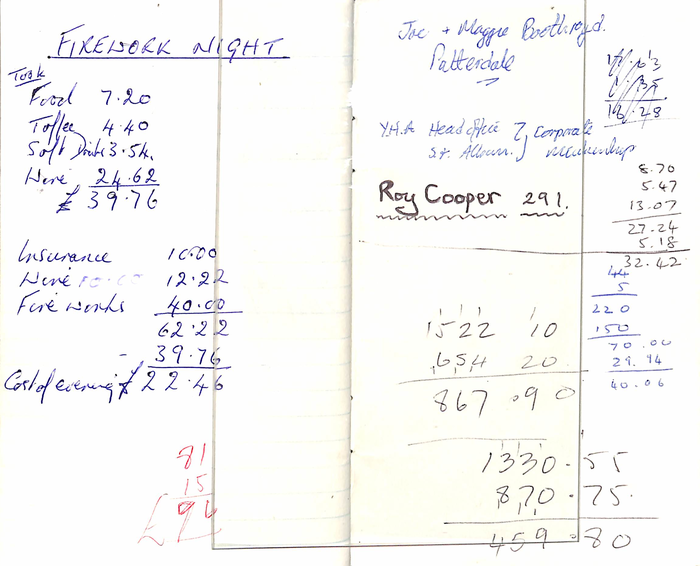 FIREWORK NIGHT
Took
Food 7.20
Toffee 4.40
Soft Drinks 3.54
Wine 24.62
£ 39.76
Insurance 10.00
Wine 12.22
Fire works 40.00
62.22
- 39.76
Cost of evening £ 22.46
81
15
£96
Joe + Maggie Boothroyd.
Patterdale
Y.H.A Head office } Corporate
St. Albans. } membership
Roy Cooper 291.
18.48
8.70
5.47
13.07
27.24
5.18
32.42
44
5
220
150
70.00
29.94
40.06
1522 10
654 20
867.90
1330.55
870.75.
459.80